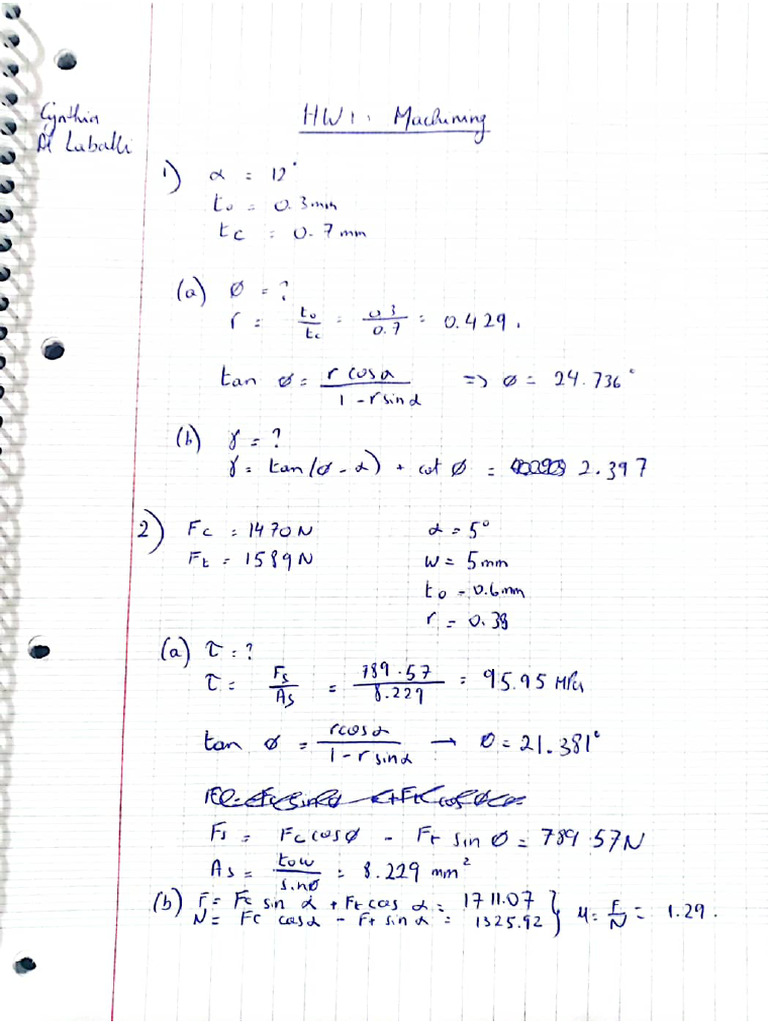 Cynthia
Al Laballi
HW1: Machining
1) α = 12°
t₀ = 0.3mm
tc = 0.7mm
(a) Ø = ?
r = t₀/tc = 0.3/0.7 = 0.429.
tan Ø = r cosα / 1 - r sinα => Ø = 24.736°
(b) γ = ?
γ = tan(Ø - α) + cot Ø = 2.397
2) Fc = 1470N α = 5°
Ft = 1589N w = 5mm
t₀ = 0.6mm
r = 0.38
(a) τ = ?
τ = Fs/As = 789.57/8.229 = 95.95 MPa
tan Ø = r cosα / 1 - r sinα → Ø = 21.381°
Fs = Fc cosØ - Ft sin Ø = 789.57N
As = t₀w / sinØ = 8.229 mm²
(b) F = Fc sin α + Ft cos α = 1711.07 } μ = F/N = 1.29.
N = Fc cosα - Ft sin α = 1325.92